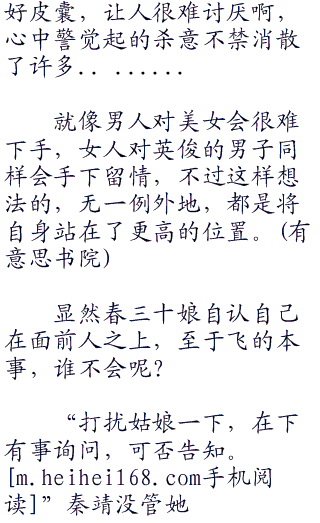 好皮囊，让人很难讨厌啊，
心中警觉起的杀意不禁消散
了许多．．．．．．．．．
就像男人对美女会很难
下手，女人对英俊的男子同
样会手下留情，不过这样想
法的，无一例外地，都是将
自身站在了更高的位置。（有
意思书院）
显然春三十娘自认自己
在面前人之上，至于飞的本
事，谁不会呢？
“打扰姑娘一下，在下
有事询问，可否告知。
[m.heihei168.com手机阅
读]”秦靖没管她